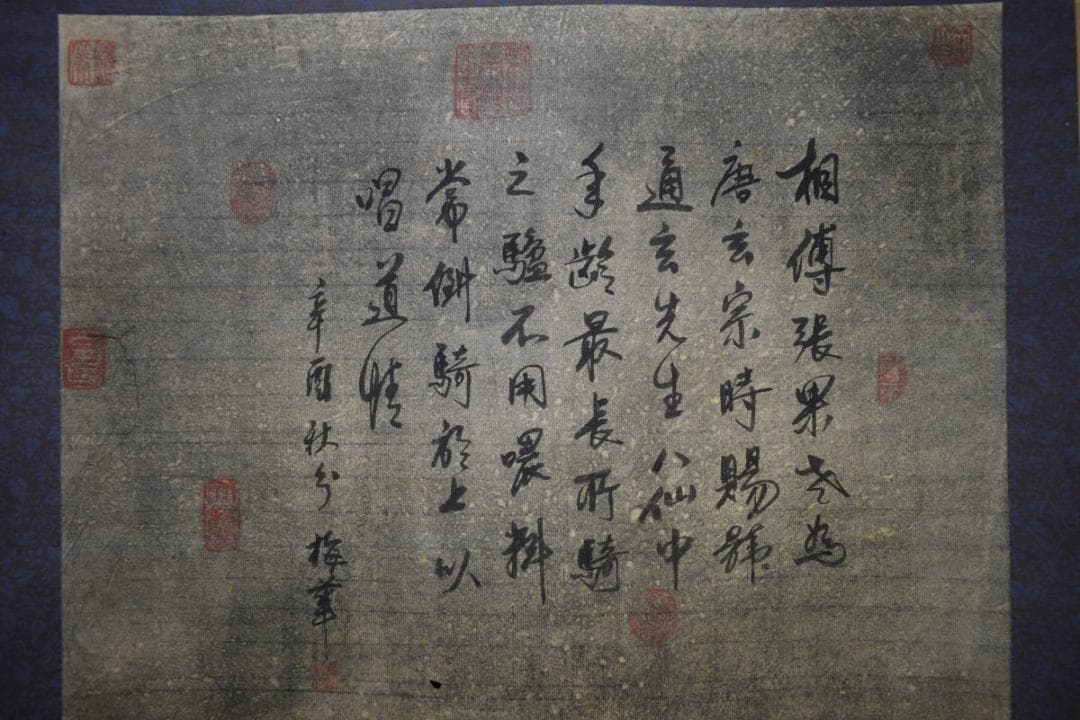 相傳張果老為
唐玄宗時賜號
通玄先生八仙中
年齡最長所騎
之驢不用喂料
常倒騎於上以
唱道情
辛酉秋分 梅華